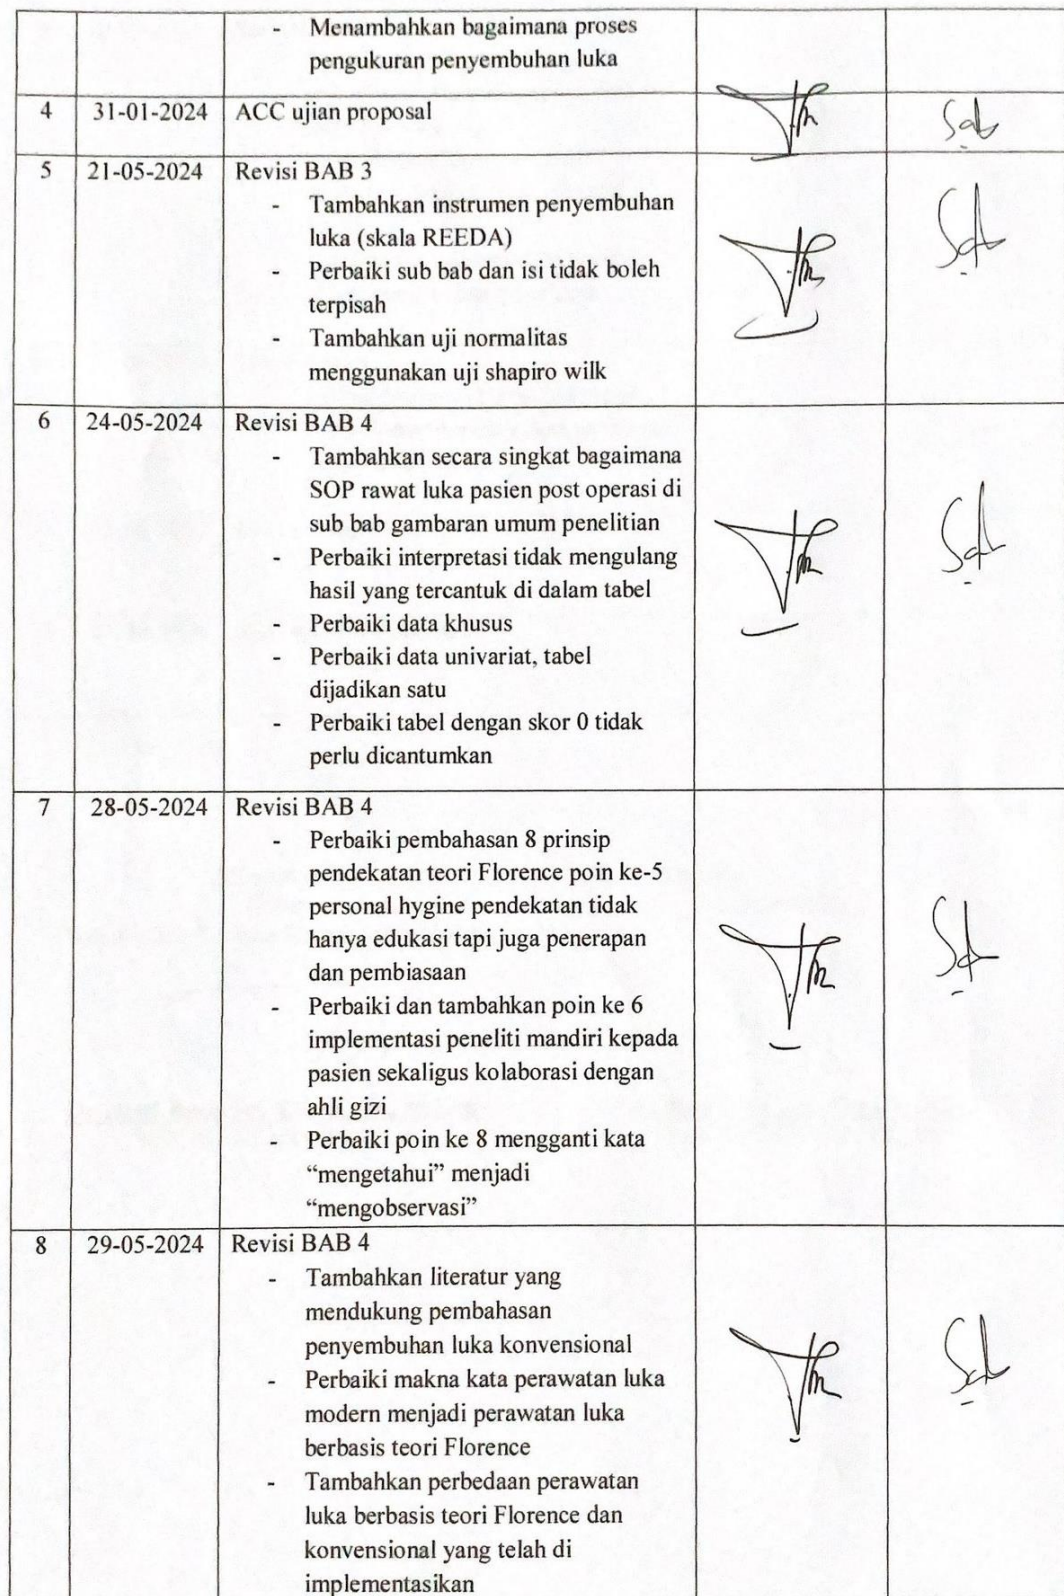 - Menambahkan bagaimana proses
pengukuran penyembuhan luka
4 31-01-2024 ACC ujian proposal
5 21-05-2024 Revisi BAB 3
- Tambahkan instrumen penyembuhan
luka (skala REEDA)
- Perbaiki sub bab dan isi tidak boleh
terpisah
- Tambahkan uji normalitas
menggunakan uji shapiro wilk
6 24-05-2024 Revisi BAB 4
- Tambahkan secara singkat bagaimana
SOP rawat luka pasien post operasi di
sub bab gambaran umum penelitian
- Perbaiki interpretasi tidak mengulang
hasil yang tercantuk di dalam tabel
- Perbaiki data khusus
- Perbaiki data univariat, tabel
dijadikan satu
- Perbaiki tabel dengan skor 0 tidak
perlu dicantumkan
7 28-05-2024 Revisi BAB 4
- Perbaiki pembahasan 8 prinsip
pendekatan teori Florence poin ke-5
personal hygine pendekatan tidak
hanya edukasi tapi juga penerapan
dan pembiasaan
- Perbaiki dan tambahkan poin ke 6
implementasi peneliti mandiri kepada
pasien sekaligus kolaborasi dengan
ahli gizi
- Perbaiki poin ke 8 mengganti kata
“mengetahui” menjadi
“mengobservasi”
8 29-05-2024 Revisi BAB 4
- Tambahkan literatur yang
mendukung pembahasan
penyembuhan luka konvensional
- Perbaiki makna kata perawatan luka
modern menjadi perawatan luka
berbasis teori Florence
- Tambahkan perbedaan perawatan
luka berbasis teori Florence dan
konvensional yang telah di
implementasikan